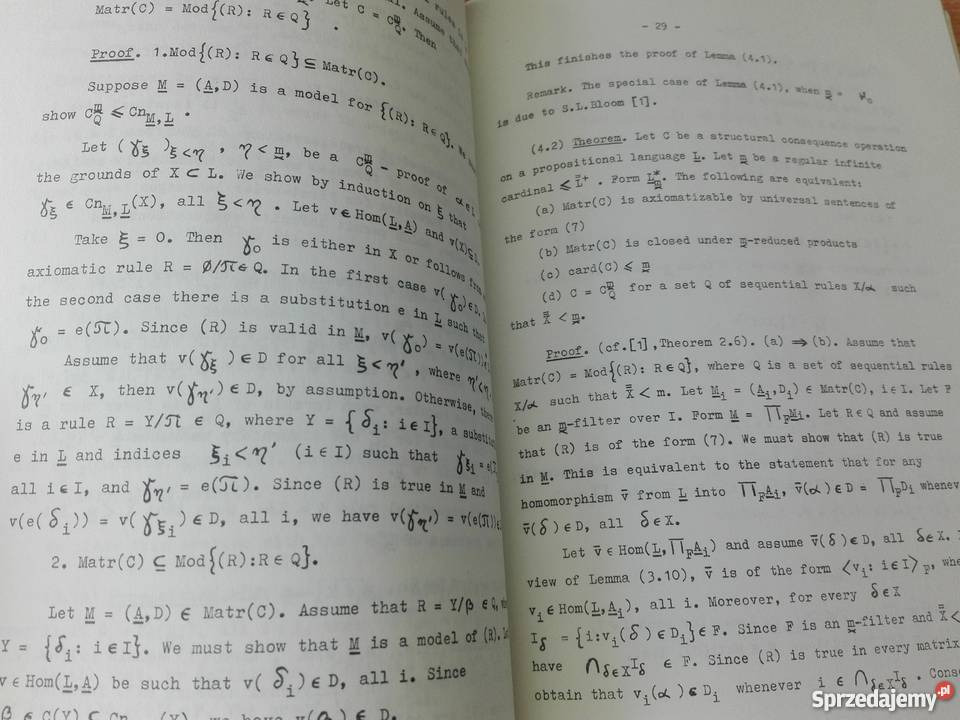 Matr(C) = Mod{(R): R∈Q} . Let C = C_Q^m̲. Then
Proof. 1.Mod{(R): R∈Q} ⊆ Matr(C).
Suppose M̲ = (A̲,D) is a model for {(R): R∈Q}. We
show C_Q^m̲ ⩽ Cn_M̲,L̲ .
Let (γ_ξ)_ξ<η , η < m̲, be a C_Q^m̲ - proof of α∈L
the grounds of X ⊂ L. We show by induction on ξ that
γ_ξ ∈ Cn_M̲,L̲(X), all ξ < η . Let v∈Hom(L̲,A̲) and v(X)⊆D.
Take ξ = 0. Then γ_0 is either in X or follows from
axiomatic rule R = ∅/π∈Q. In the first case v(γ_0)∈D.
the second case there is a substitution e in L̲ such that
γ_0 = e(π). Since (R) is valid in M̲, v(γ_0) = v(e(π))
Assume that v(γ_ξ)∈D for all ξ<η', where η'<η.
γ_η' ∈ X, then v(γ_η')∈D, by assumption. Otherwise,
is a rule R = Y/π ∈ Q, where Y = {δ_i: i∈I}, a
e in L̲ and indices ξ_i<η' (i∈I) such that γ_ξi = e
all i∈I, and γ_η' = e(π). Since (R) is true in M̲ and
v(e(δ_i)) = v(γ_ξi)∈D, all i, we have v(γ_η') = v(e(π))
2. Matr(C) ⊆ Mod{(R):R∈Q}.
Let M̲ = (A̲,D) ∈ Matr(C). Assume that R = Y/β ∈ Q,
Y = {δ_i: i∈I}. We must show that M̲ is a model of (R).
v∈Hom(L̲,A̲) be such that v(δ_i)∈D, all i. Since
β ∈ C(Y) ⊆ Cn (Y), we have v(β) ∈ D.
- 29 -
This finishes the proof of Lemma (4.1).
Remark. The special case of Lemma (4.1), when m̲ = ℵ_0
is due to S.L.Bloom [1].
(4.2) Theorem. Let C be a structural consequence operation
on a propositional language L̲. Let m̲ be a regular infinite
cardinal ⩽ L̿⁺ . Form L̲*_m̲. The following are equivalent:
(a) Matr(C) is axiomatizable by universal sentences of
the form (7)
(b) Matr(C) is closed under m̲-reduced products
(c) card(C) ⩽ m̲
(d) C = C_Q^m̲ for a set Q of sequential rules X/α such
that X̿ < m̲.
Proof. (cf.[1],Theorem 2.6). (a) ⇒ (b). Assume that
Matr(C) = Mod{(R): R∈Q}, where Q is a set of sequential rules
X/α such that X̿ < m. Let M̲_i = (A̲_i,D_i) ∈ Matr(C), i∈I. Let F
be an m̲-filter over I. Form M̲ = ∏_F M̲_i. Let R∈Q and assume
that (R) is of the form (7). We must show that (R) is true
in M̲. This is equivalent to the statement that for any
homomorphism v̄ from L̲ into ∏_F A̲_i, v̄(α)∈D = ∏_F D_i
v̄(δ)∈D, all δ∈X.
Let v̄∈Hom(L̲,∏_F A̲_i) and assume v̄(δ)∈D, all δ∈X.
view of Lemma (3.10), v̄ is of the form ⟨v_i: i∈I⟩_F,
v_i∈Hom(L̲,A̲_i), all i. Moreover, for every δ∈X
I_δ = {i:v_i(δ)∈D_i}∈F. Since F is an m̲-filter and X̿ <
have ⋂_δ∈X I_δ ∈ F. Since (R) is true in every matrix
obtain that v_i(α)∈D_i whenever i ∈ ⋂_δ∈X I_δ .
Sprzedajemy.pl